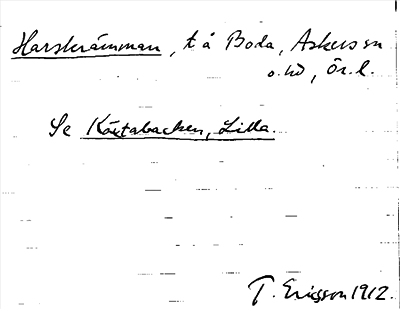 Harskrämman, t å Boda, Askers sn
o. hd, Ör. l.
Se Kästabacken, Lilla.
T. Ericsson 1912.